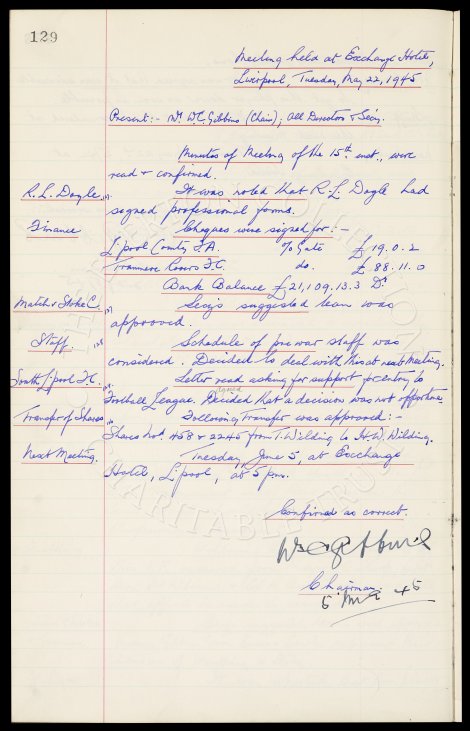 129
Meeting held at Exchange Hotel,
Liverpool, Tuesday, May 22, 1945
Present:- Mr W.C. Gibbins (Chair); All Directors & Secy.
Minutes of Meeting of the 15th inst., were
read & confirmed.
R.L. Dagle
It was noted that R.L. Dagle had
signed professional forms.
Finance
Cheques were signed for:-
L'pool County F.A. % Gate £ 19.0.2
Tranmere Rovers F.C. do. £ 88.11.0
Bank Balance £21,109.13.3 Dr
Match v Stoke C.
Secy's suggested team was
approved.
Staff.
Schedule of pre war staff was
considered. Decided to deal with this at next Meeting.
South L'pool F.C.
Letter read asking for support for entry to
Football League. Decided that a decision was not opportune.
Transfer of Shares
Following Transfer was approved:-
Shares Nos. 458 & 2245 from T. Wilding to H.W. Wilding.
Next Meeting.
Tuesday, June 5, at Exchange
Hotel, L'pool, at 5 pm.
Confirmed as correct.
Chairman.
5 45
THE EVERTON COLLECTION
CHARITABLE TRUST